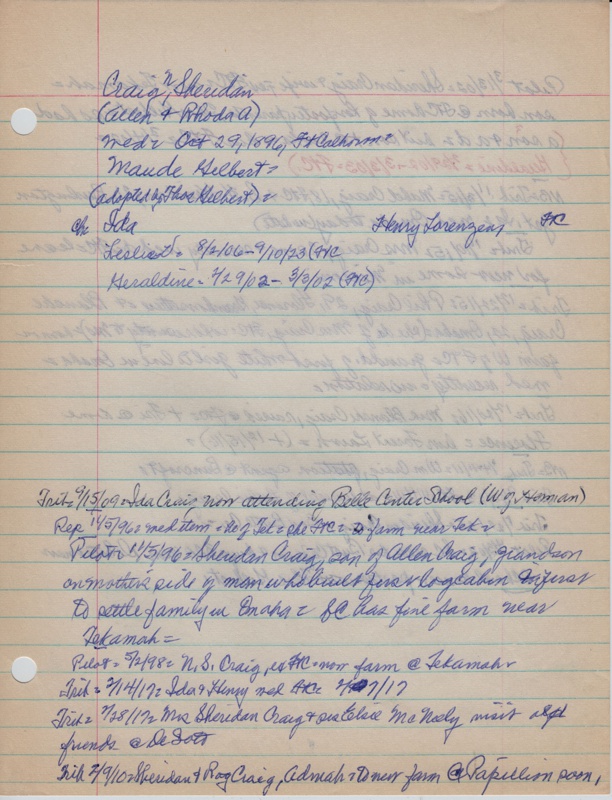 Craig, N, Sheridan
(Allen & Rhoda A)
med= Oct 29, 1896, Ft Calhoun=
Maude Gilbert=
(adopted by Thos Gilbert)=
Ch Ida Henry Lorenzen, FtC
Leslie D= 8/2/06-9/10/23 (FtC
Geraldine= 7/29/02- 3/3/02 (FtC)
Trib= 9/15/09= Ida Craig now attending Belle Center School (W of Homian)
Rep 11/5/96= med item= He of Tek= she FtC= farm near Tek=
Pilot= 11/5/96= Sheridan Craig, son of Allen Craig, grandson
on mothers side of man who built first log cabin & first
to settle family in Omaha= SC has fine farm near
Tekamah=
Pilot= 5/2/98= N. S. Craig, ex FtC= now farm @ Tekamah=
Trib= 2/14/17= Ida & Henry med FtC= 2/7/17
Trib= 7/28/17= Mrs Sheridan Craig & sis Elsie McNeely visit old
friends @ DeSoto
Trib 2/9/10= Sheridan & Roy Craig, Admah= to new farm @ Papillion soon,